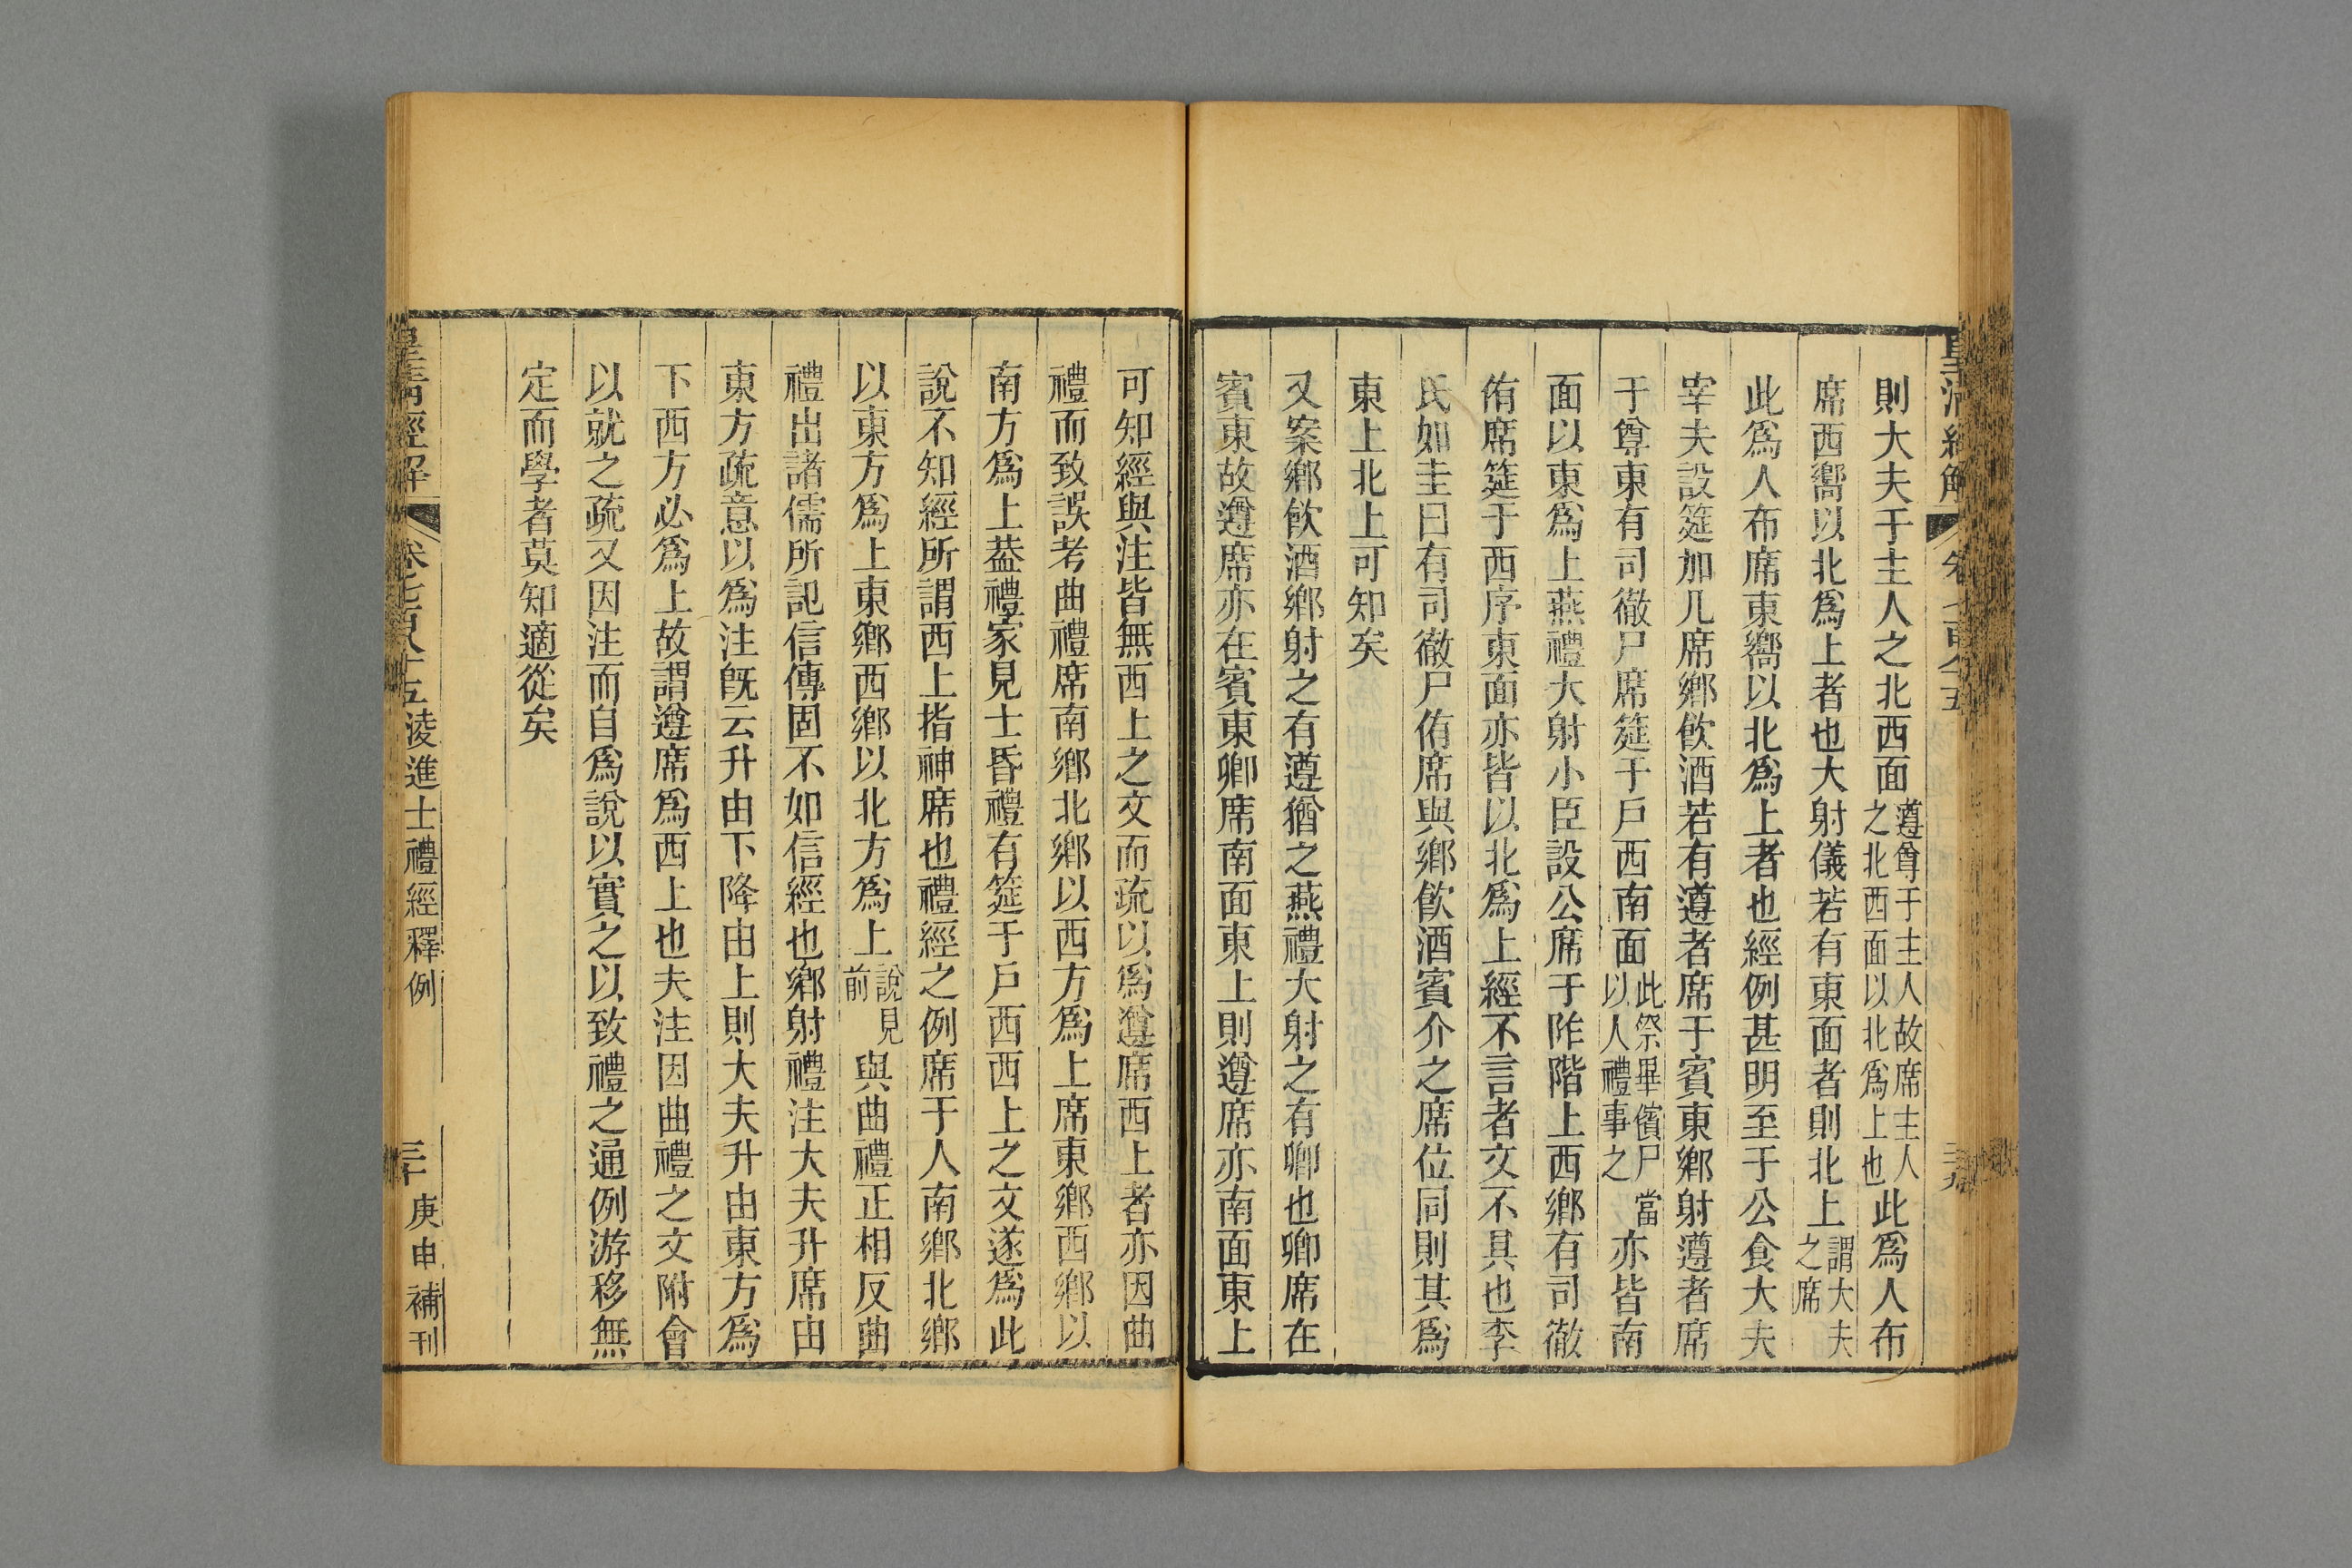 則大夫于主人之北西面遵尊于主人故席主人之北西面以北爲上也此爲人布
席西嚮以北爲上者也大射儀若有東面者則北上謂大夫之席
此爲人布席東嚮以北爲上者也經例甚明至于公食大夫
宰夫設筵加几席鄉飮酒若有遵者席于賓東鄉射遵者席
于尊東有司徹尸席筵于戶西南面此祭畢儐尸當以人禮事之亦皆南
面以東爲上燕禮大射小臣設公席于阼階上西鄉有司徹
侑席筵于西序東面亦皆以北爲上經不言者文不具也李
氏如圭曰有司徹尸侑席與鄉飮酒賓介之席位同則其爲
東上北上可知矣
又案鄉飮酒鄉射之有遵猶之燕禮大射之有卿也卿席在
賓東故遵席亦在賓東卿席南面東上則遵席亦南面東上
可知經與注皆無西上之文而疏以爲遵席西上者亦因曲
禮而致誤考曲禮席南鄉北鄉以西方爲上席東鄉西鄉以
南方爲上葢禮家見士昏禮有筵于戶西西上之文遂爲此
說不知經所謂西上指神席也禮經之例席于人南鄉北鄉
以東方爲上東鄉西鄉以北方爲上說見前與曲禮正相反曲
禮出諸儒所記信傳固不如信經也鄉射禮注大夫升席由
東方疏意以爲注旣云升由下降由上則大夫升由東方爲
下西方必爲上故謂遵席爲西上也夫注因曲禮之文附會
以就之疏又因注而自爲說以實之以致禮之通例游移無
定而學者莫知適從矣
皇淸經解 卷七百八十五 淩進士禮經釋例 三十 庚申補刊